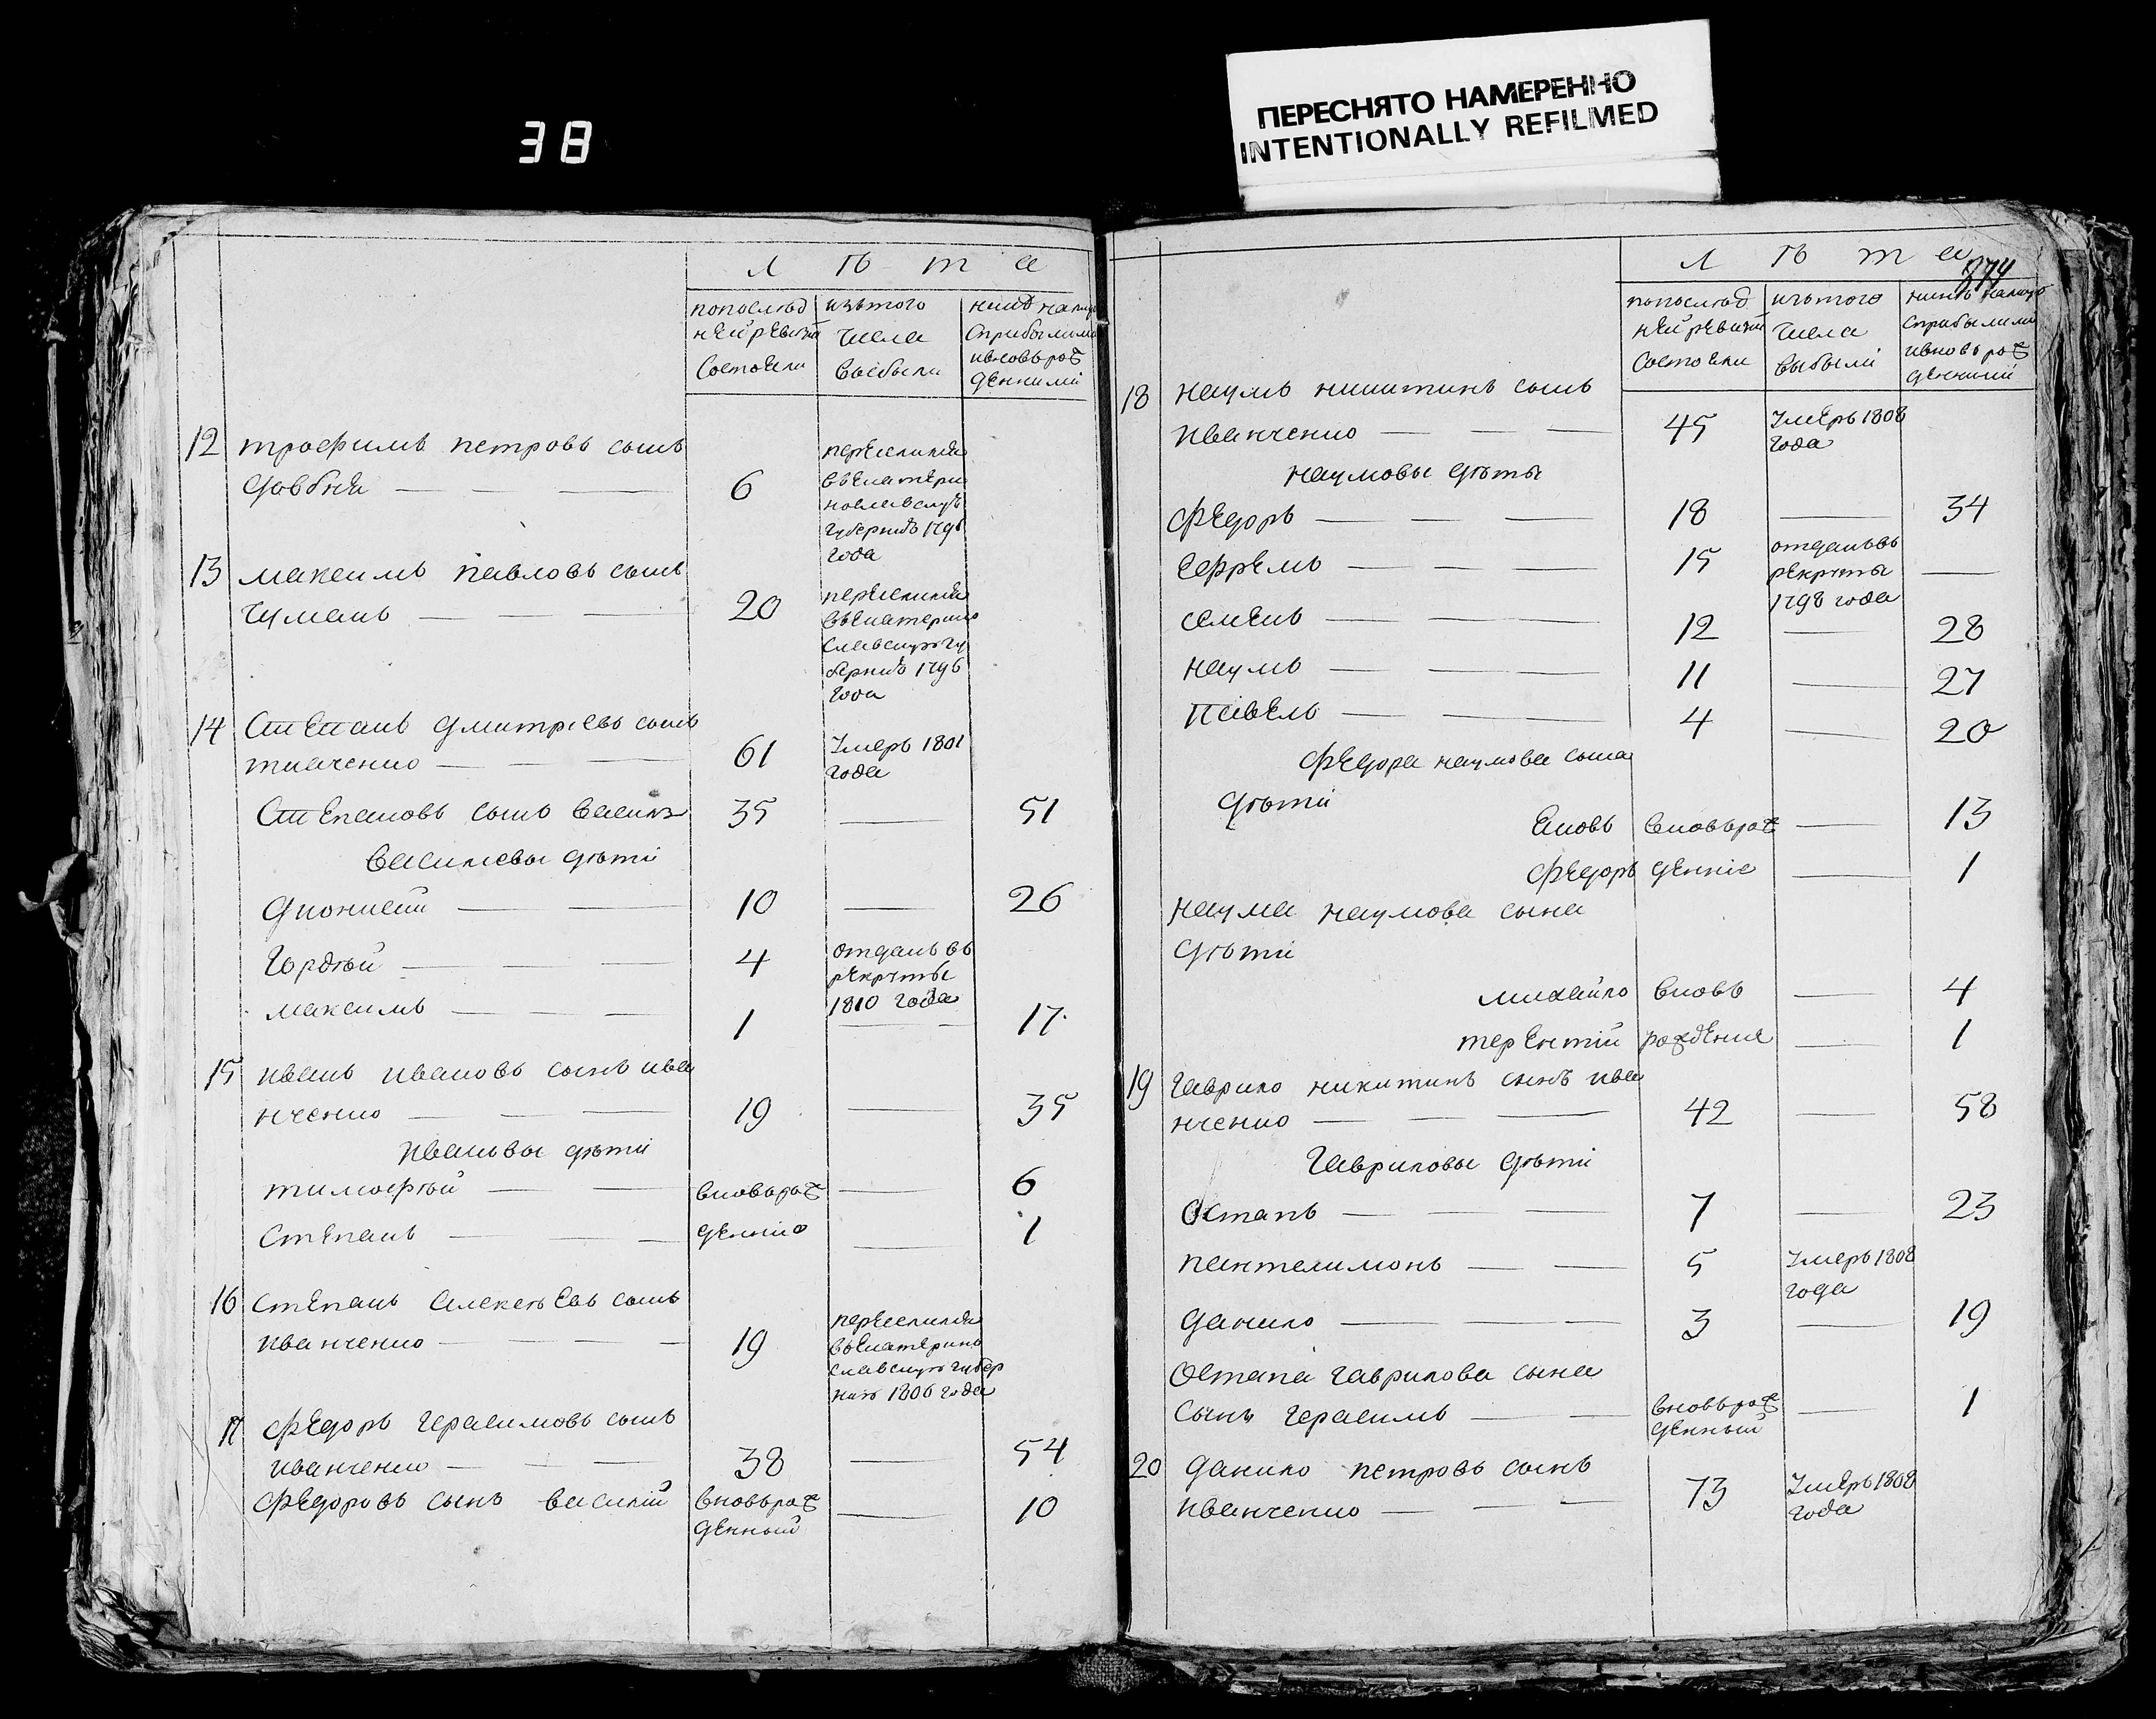 38
ПЕРЕСНЯТО НАМЕРЕННО
INTENTIONALLY REFILMED
л ѣ т а
попослѣд
нейревизий
состояли
изътого
числа
выбыли
ныне налицо
сприбылими
ивновьрож
денними
12 трофимъ петровъ сынъ
довбня — — 6
переселился
въекатери
нославскую
губернию 1796
года
13 максимъ павловъ сынъ
чумакъ — — 20
переселился
въекатерино
славскую гу
бернию 1796
года
14 Степанъ дмитриевъ сынъ
ткаченко — — — 61 Умеръ 1801
года
Степановъ сынъ василь 35 — 51
василиевы дѣти
дионисий — — 10 — 26
Гордѣй — — — 4 отданъ въ
рекруты
1810 года
максимъ — — — 1 — 17
15 иванъ ивановъ сынъ ива
нченко — — — 19 — 35
ивановы дѣти
тимофѣй — — вновьрож — 6
Степанъ — — денние — 1
16 степанъ алексѣевъ сынъ
иванченко — — — 19
переселился
въекатерино
славскую губер
нию 1806 года
17 федоръ герасимовъ сынъ
иванченко — — — 38 — 54
федоровъ сынъ василий вновьрож — 10
денный
974
л ѣ т а
попослѣд
нейревизий
состояли
изътого
числа
выбыли
нинѣ налицо
сприбылими
ивновьрож
денними
18 наумъ никитинъ сынъ
иванченко — — — 45 Умеръ 1808
года
наумовы дѣты
федоръ — — — 18 — 34
Ефремъ — — — 15 отданъвъ
рекруты
1798 года —
семенъ — — 12 — 28
наумъ — — 11 — 27
павелъ — — 4 — 20
федора наумова сына
дѣти
яковъ вновьрож — 13
федоръ денние — 1
наума наумова сына
дѣти
михайло вновь — 4
терентий рождение — 1
19 гаврило никитинъ сынъ ива
нченко — — 42 — 58
гавриловы дѣти
Остапъ — — — 7 — 23
пантелимонъ — — 5 Умеръ 1808
года
данило — — — 3 — 19
Остапа гаврилова сына
сынъ герасимъ — — вновьрож — 1
денный
20 данило петровъ сынъ
иванченко — — — 73 Умеръ 1808
года